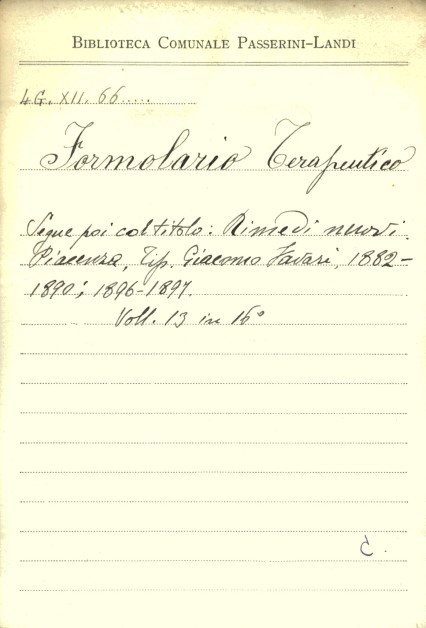 BIBLIOTECA COMUNALE PASSERINI-LANDI
4G. XII. 66.....
Formolario Terapeutico
Segue poi col titolo: Rimedi nuovi.
Piacenza, Tip. Giacomo Favari, 1882-
1890; 1896-1897.
Voll. 13 in 16°
C.